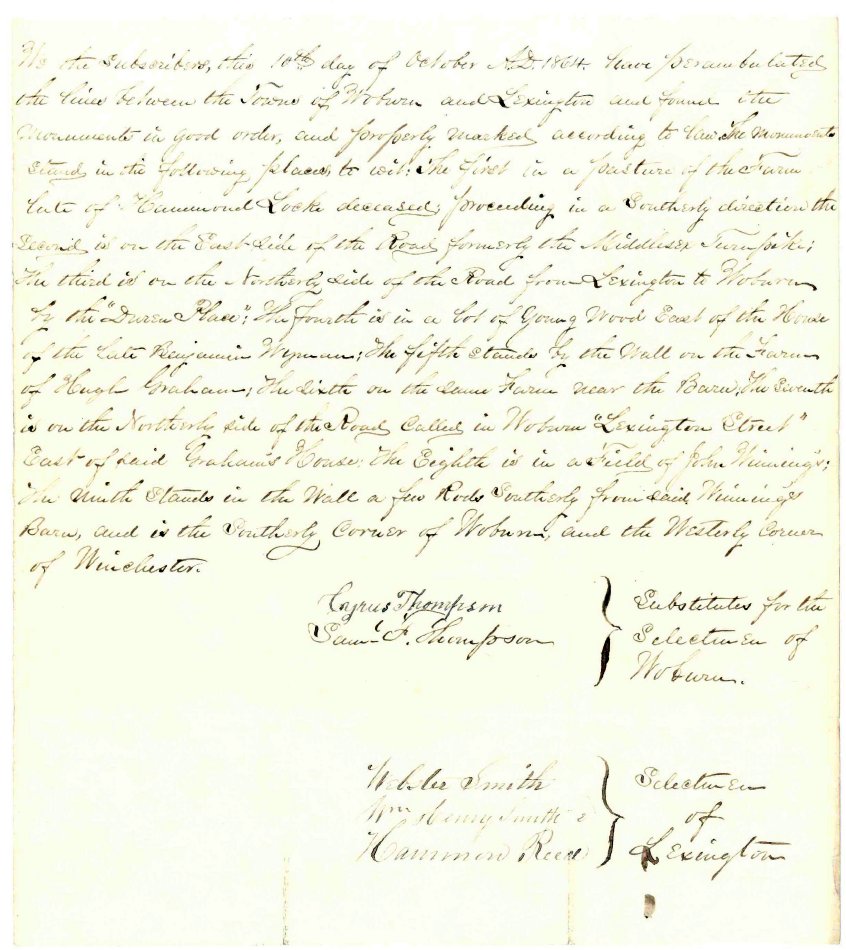 We the Subscribers, this 10th day of October A.D. 1864. have perambulated
the lines between the Towns of Woburn and Lexington and found the
Monuments in good order, and properly marked according to law. The Monuments
stand in the following places, to wit: The first in a pasture of the Farm
late of Hammond Locke deceased; proceeding in a Southerly direction the
Second is on the East side of the Road formerly the Middlesex Turnpike;
The third is on the Northerly side of the Road from Lexington to Woburn
by the "Duren Place"; The Fourth is in a lot of Young Wood East of the House
of the late Benjamin Wyman; The fifth stands by the Wall on the Farm
of Hugh Graham; The sixth on the same Farm near the Barn; The Seventh
is on the Northerly side of the Road Called in Woburn "Lexington Street"
East of said Graham's House; The Eighth is in a Field of John Winning's;
The ninth Stands in the Wall a few Rods Southerly from said Winning's
Barn, and is the Southerly Corner of Woburn, and the Westerly Corner
of Winchester.
Cyrus Thompson
Saml. F. Thompson
Substitutes for the
Selectmen of
Woburn.
Webster Smith
Wm Henry Smith
Hammon Reed
Selectmen
of
Lexington